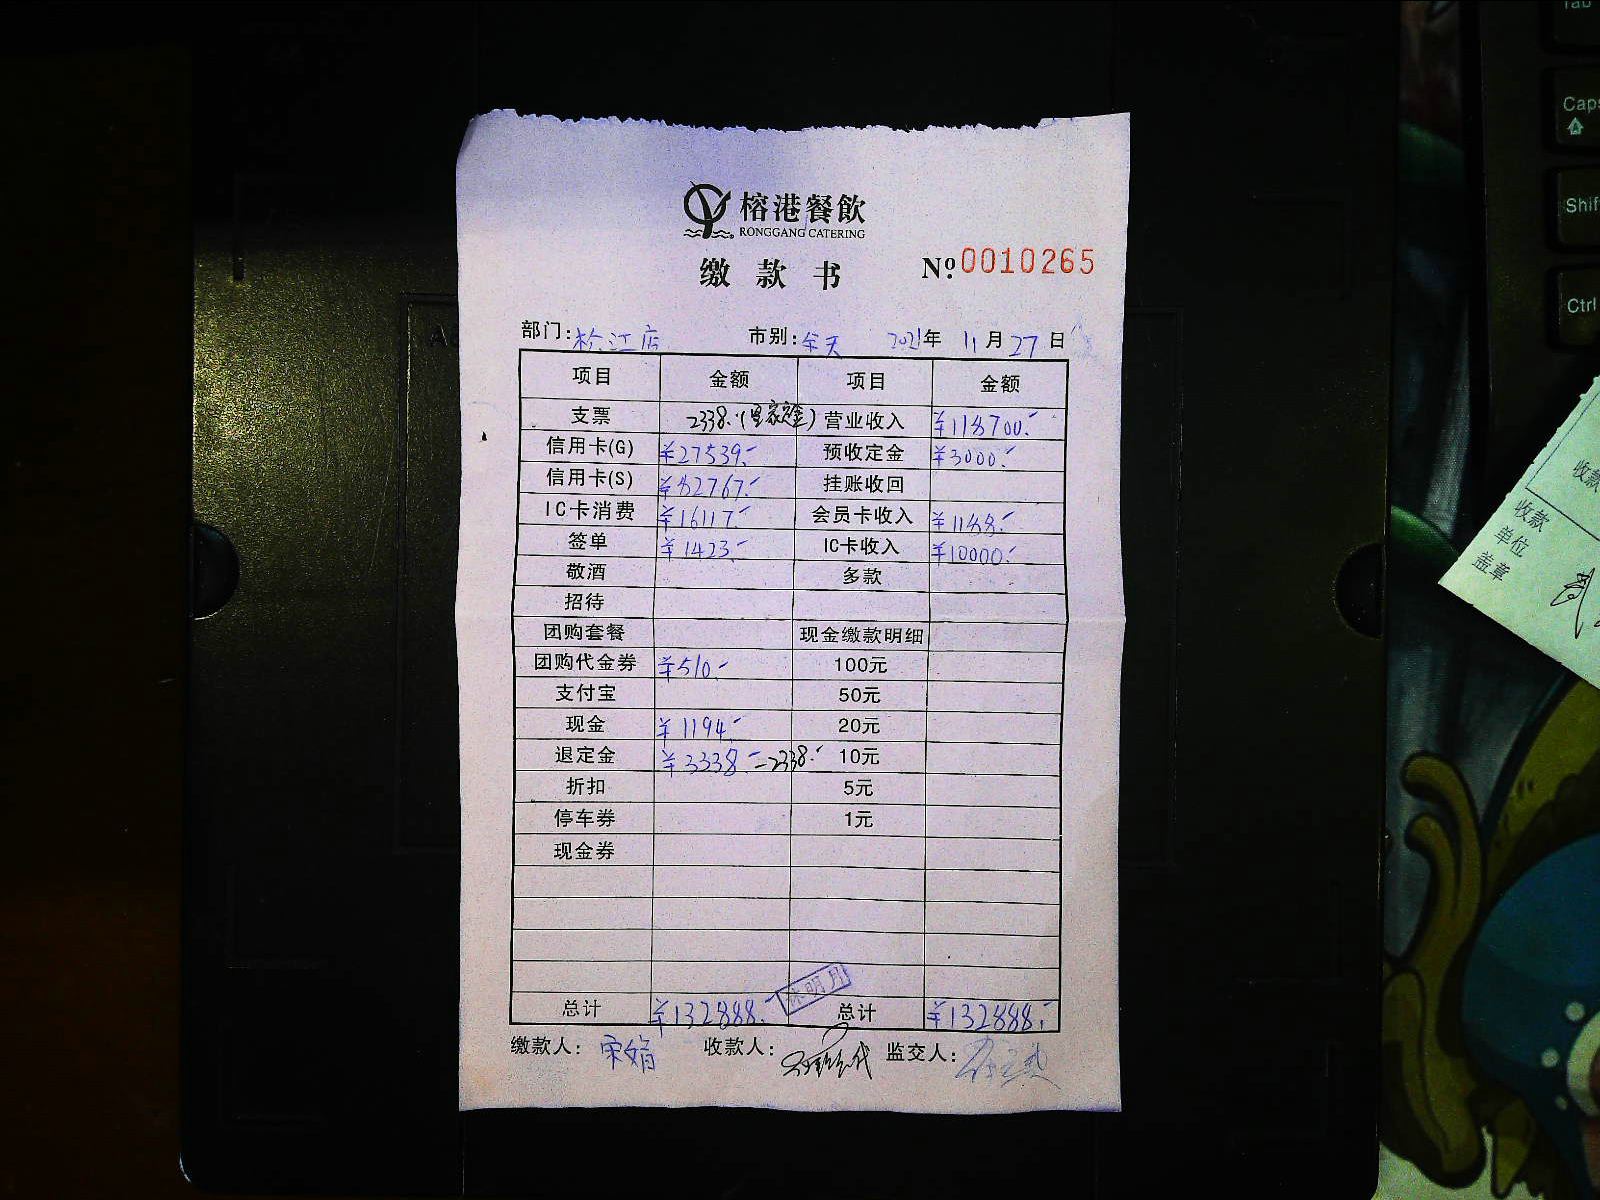 榕港餐飲
RONGGANG CATERING
缴款书 №0010265
部门:松江店 市别:全天 2021年11月27日
项目 金额 项目 金额
支票 2338.(皇家定金) 营业收入 ¥118700.-
信用卡(G) ¥27539.- 预收定金 ¥3000.-
信用卡(S) ¥82767.- 挂账收回
IC卡消费 ¥16117.- 会员卡收入 ¥1188.-
签单 ¥1423.- IC卡收入 ¥10000.-
敬酒 多款
招待
团购套餐 现金缴款明细
团购代金券 ¥510.- 100元
支付宝 50元
现金 ¥1194.- 20元
退定金 ¥3338.- -2338.- 10元
折扣 5元
停车券 1元
现金券
总计 ¥132888.- 总计 ¥132888.-
明月
缴款人: 宋娟 收款人: 监交人:
Tab
Caps
Shift
Ctrl
收款
收款
单位
盖章